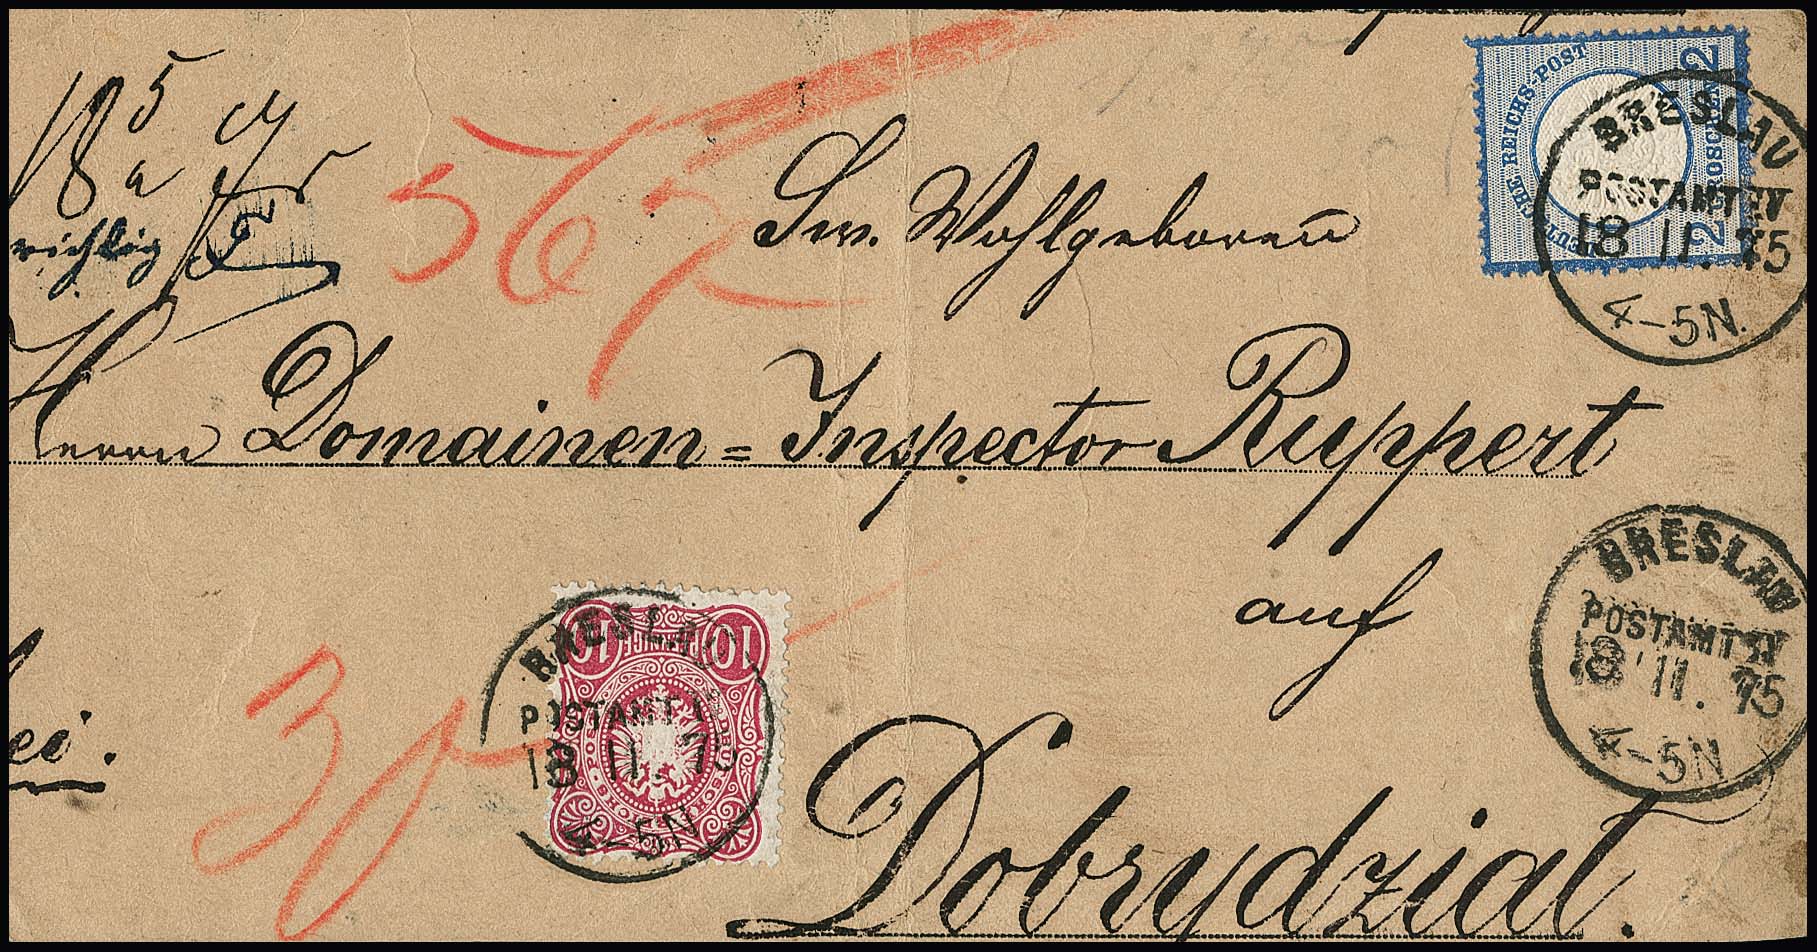 18 5/4
richtig
567
Sw. Wohlgeboren
Herrn Domainen=Inspector Ruppert
auf
Dobrydzial.
ei.
30
DEUTSCHE REICHS-POST
2 GROSCHEN 2
BRESLAU
POSTAMT IV
18 11. 75
4-5N.
BRESLAU
POSTAMT IV
18 11. 75
4-5N
10 PFENNIGE 10
BRESLAU
POSTAMT IV
18 11. 75
4-5N